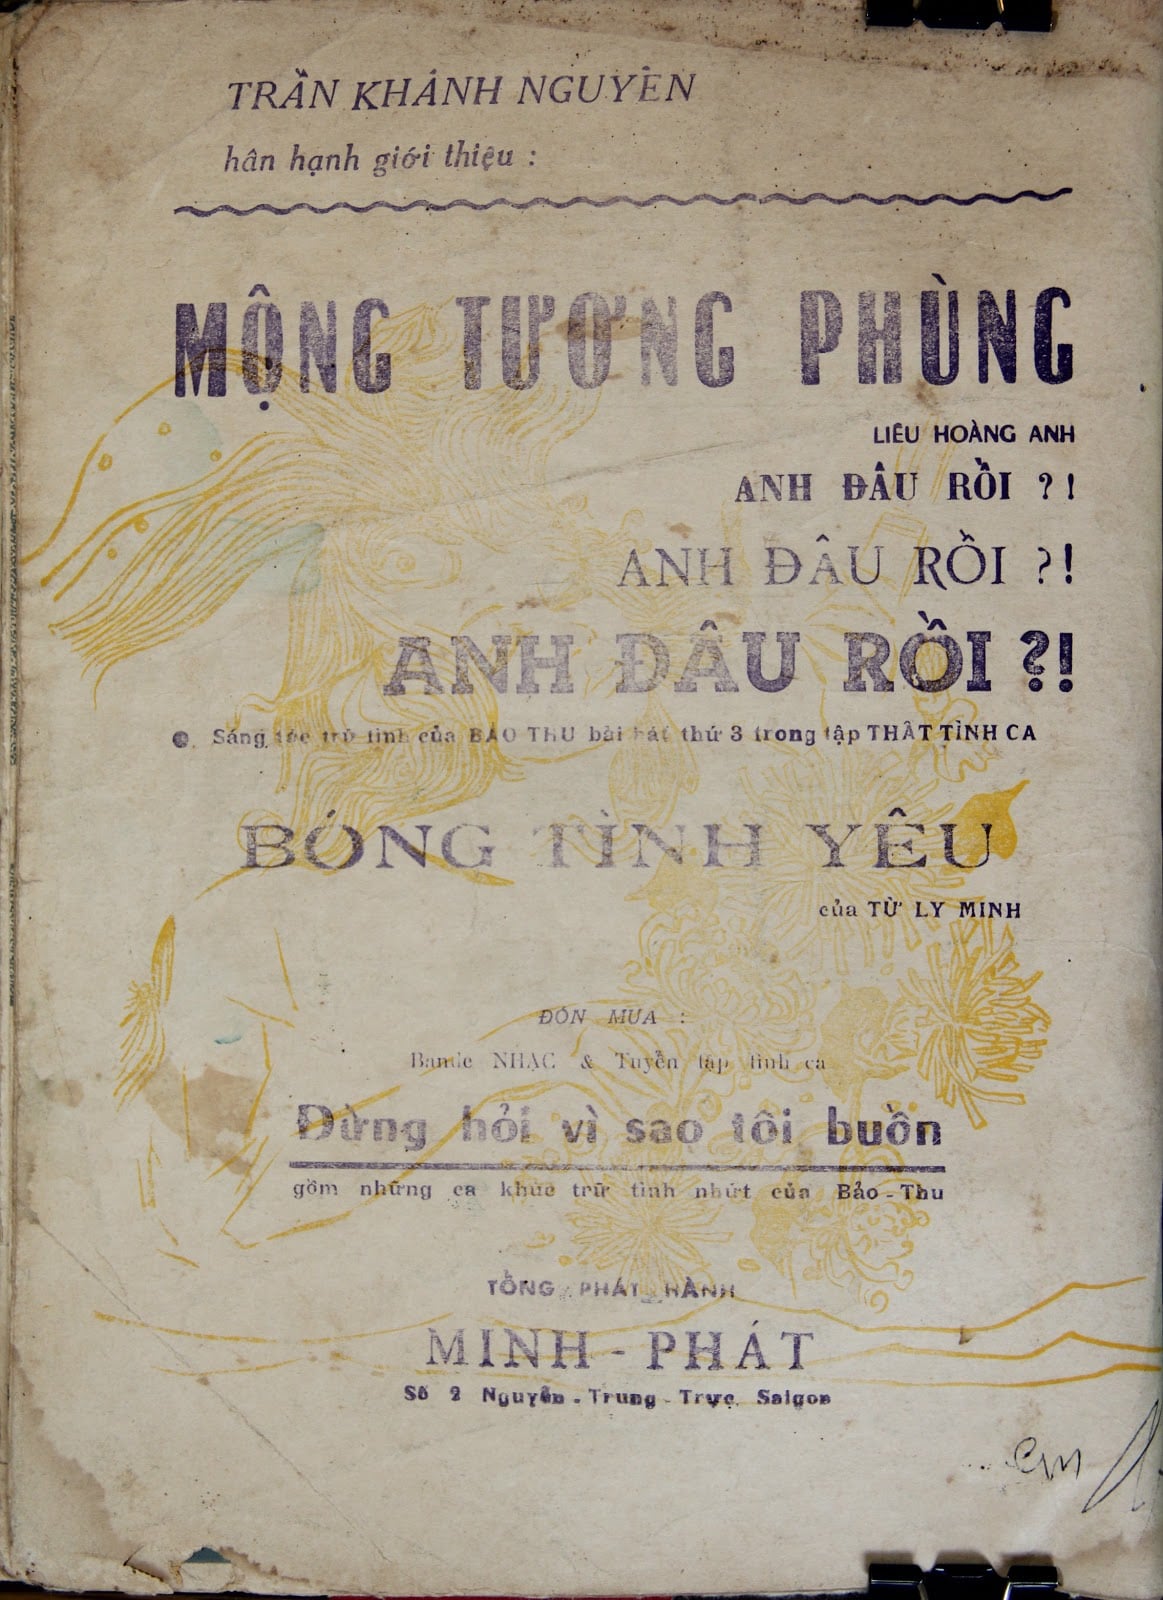 TRẦN KHÁNH NGUYÊN
hân hạnh giới thiệu :
MỘNG TƯƠNG PHÙNG
LIÊU HOÀNG ANH
ANH ĐÂU RỒI ? !
ANH ĐÂU RỒI ?!
ANH ĐÂU RỒI ?!
Sáng tác trữ tình của BẢO THU bài hát thứ 3 trong tập THẤT TÌNH CA
BÓNG TÌNH YÊU
của TỪ LY MINH
ĐÓN MUA :
Bande NHẠC & Tuyển tập tình ca
Đừng hỏi vì sao tôi buồn
gồm những ca khúc trữ tình nhứt của Bảo - Thu
TỔNG PHÁT HÀNH
MINH - PHÁT
Số 2 Nguyễn - Trung - Trực Saigon
em